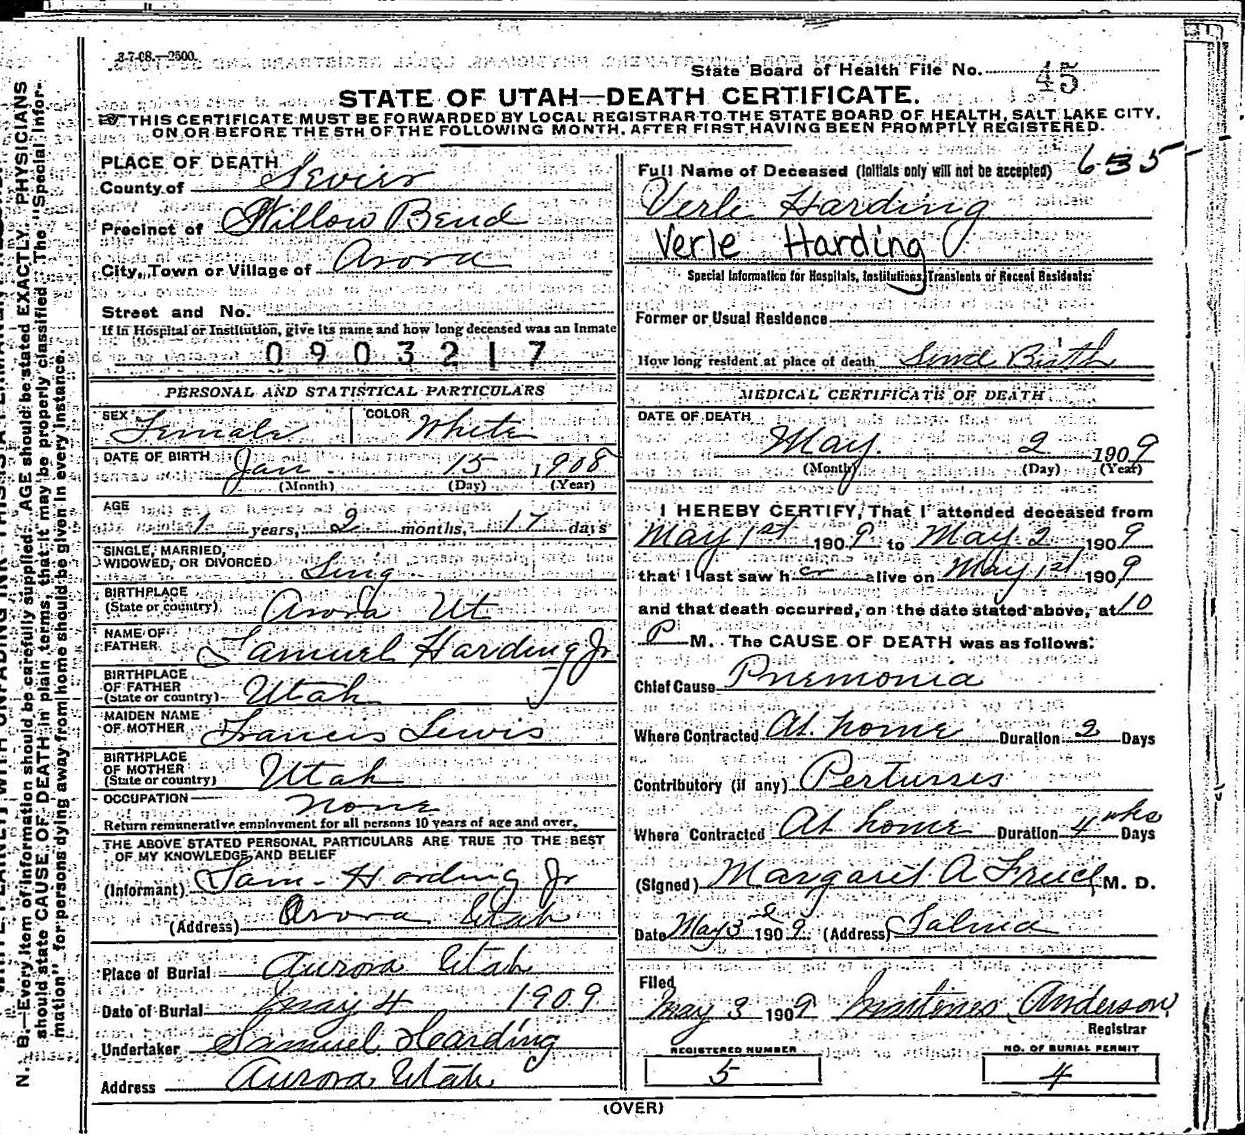 3-7-08.—2500.
State Board of Health File No. 45
STATE OF UTAH—DEATH CERTIFICATE.
THIS CERTIFICATE MUST BE FORWARDED BY LOCAL REGISTRAR TO THE STATE BOARD OF HEALTH, SALT LAKE CITY,
ON OR BEFORE THE 5TH OF THE FOLLOWING MONTH, AFTER FIRST HAVING BEEN PROMPTLY REGISTERED.
PLACE OF DEATH
County of Sevier
Precinct of Willow Bend
City, Town or Village of Arora
Street and No.
If in Hospital or Institution, give its name and how long deceased was an Inmate
0903217
PERSONAL AND STATISTICAL PARTICULARS
SEX Female COLOR White
DATE OF BIRTH Jan. 15, 1908
(Month) (Day) (Year)
AGE 1 years, 2 months, 17 days
SINGLE, MARRIED,
WIDOWED, OR DIVORCED Sing
BIRTHPLACE
(State or country) Arora Ut
NAME OF
FATHER Samuel Harding Jr.
BIRTHPLACE
OF FATHER
(State or country) Utah
MAIDEN NAME
OF MOTHER Francis Lewis
BIRTHPLACE
OF MOTHER
(State or country) Utah
OCCUPATION None
Return remunerative employment for all persons 10 years of age and over.
THE ABOVE STATED PERSONAL PARTICULARS ARE TRUE TO THE BEST
OF MY KNOWLEDGE AND BELIEF
(Informant) Sam. Harding Jr
(Address) Arora Utah
Place of Burial Aurora Utah
Date of Burial May 4 1909
Undertaker Samuel Harding
Address Aurora Utah.
635
Full Name of Deceased (Initials only will not be accepted)
Verle Harding
Verle Harding
Special Information for Hospitals, Institutions, Transients or Recent Residents:
Former or Usual Residence
How long resident at place of death Sinc Birth
MEDICAL CERTIFICATE OF DEATH
DATE OF DEATH
May. 2 1909
(Month) (Day) (Year)
I HEREBY CERTIFY, That I attended deceased from
May 1st 1909 to May 2 1909
that I last saw her alive on May 1st 1909
and that death occurred, on the date stated above, at 10
P M. The CAUSE OF DEATH was as follows:
Chief Cause Pnemonia
Where Contracted At home Duration 2 Days
Contributory (if any) Perturssis
Where Contracted At home Duration 4 wks Days
(Signed) Margaret A M. D.
Date May 3d 1909. (Address) Salina
Filed
May 3 1909 Anderson
Registrar
REGISTERED NUMBER
5
NO. OF BURIAL PERMIT
4
(OVER)
N. B.—Every item of information should be carefully supplied. AGE should be stated EXACTLY. PHYSICIANS
should state CAUSE OF DEATH in plain terms, that it may be properly classified. The "Special Infor-
mation" for persons dying away from home should be given in every instance.